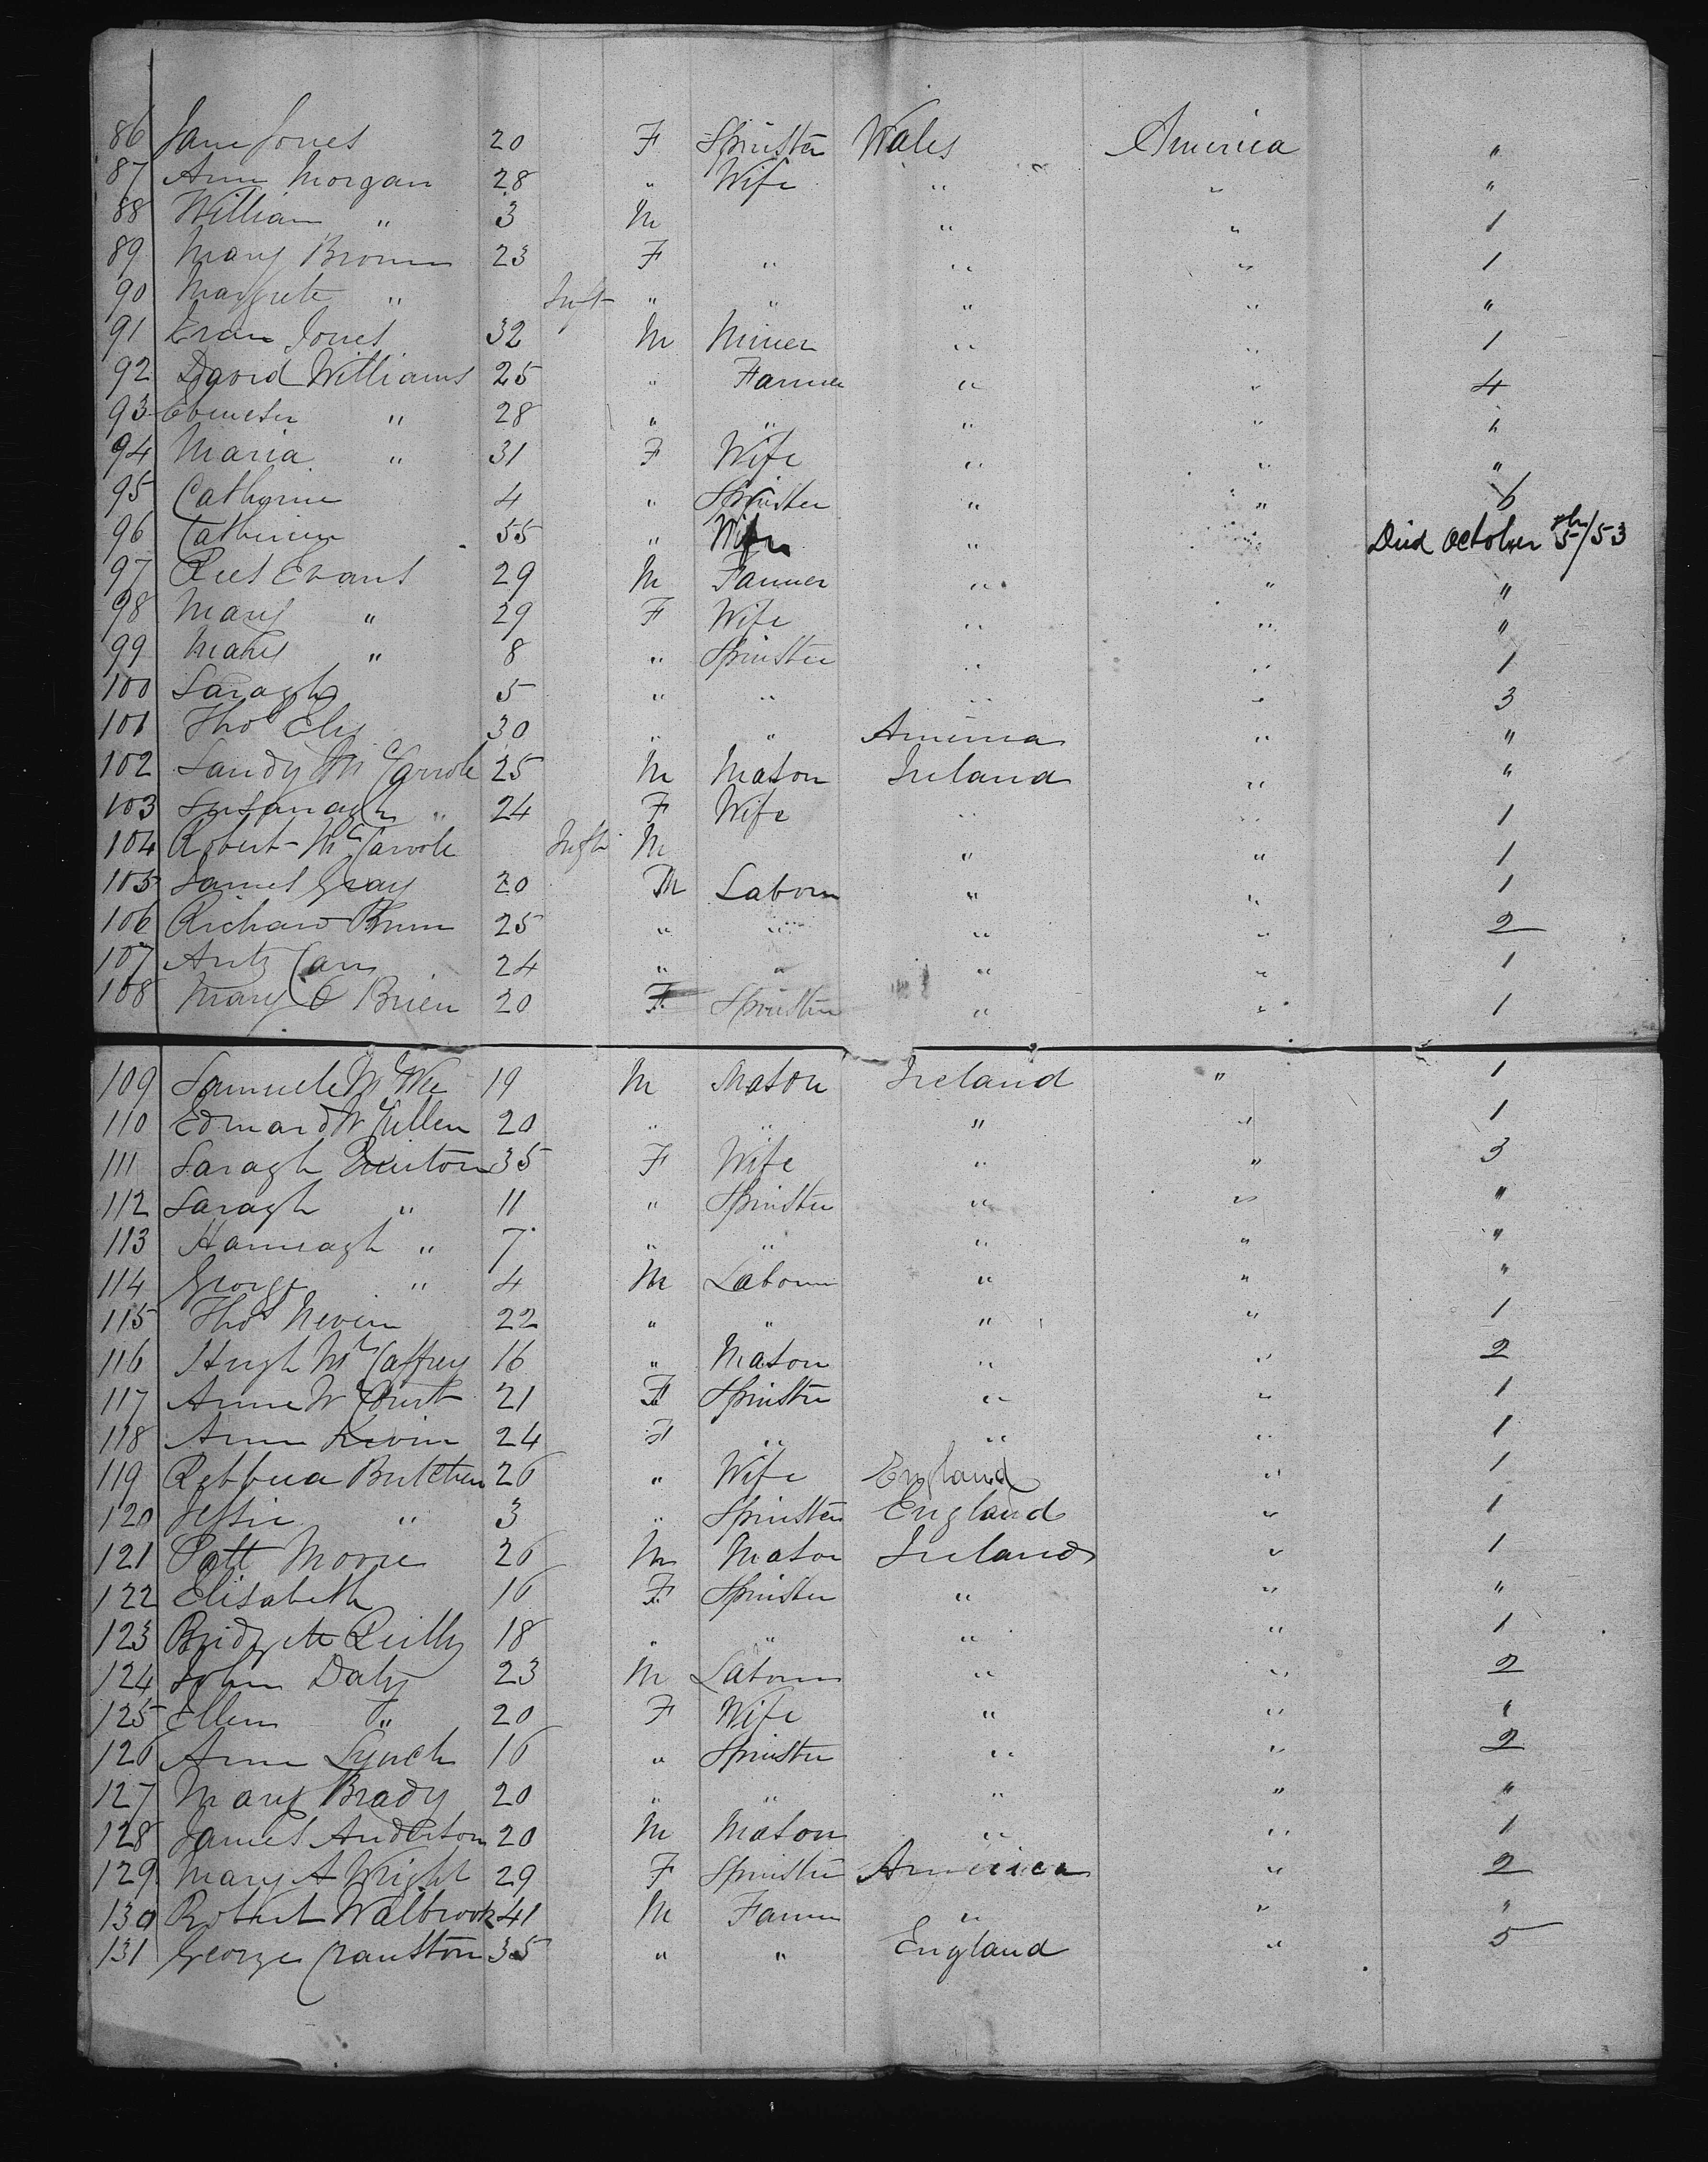 86 Jane Jones 20 F Spinster Wales America "
87 Ann Morgan 28 " Wife " " "
88 William " 3 M " " 1
89 Mary Brown 23 F " " " 1
90 Margrete " Inft " " " " "
91 Evan Jones 32 M Miner " " 1
92 David Williams 25 " Farmer " " 4
93 Ebenezer " 28 " " " " "
94 Maria " 31 F Wife " " "
95 Catherine 4 " Spinster " " 6
96 Catherine 55 " " " Died October 5th/53
97 Rees Evans 29 M Farmer " " "
98 Mary " 29 F Wife " " "
99 Mary " 8 " Spinster " " 1
100 Saragh 5 " " " " 3
101 Thos Ely 30 " " America " "
102 Sandy McCarrole 25 M Mason Ireland " "
103 Susanagh " 24 F Wife " " 1
104 Robert McCarrole Inft M " " 1
105 James Gray 20 M Labour " " 1
106 Richard 25 " " " " 2
107 24 " " " " 1
108 Mary O Brien 20 F Spinster " " 1
109 Samuele 19 M Mason Ireland " 1
110 Edward McCullen 20 " " " " 1
111 Saragh 35 F Wife " " 3
112 Saragh " 11 " Spinster " " "
113 Hannagh " 7 " " " " "
114 George " 4 M Labour " " "
115 Thos Nevin 22 " " " " 1
116 Hugh McCaffrey 16 " Mason " " 2
117 Anne 21 F Spinster " " 1
118 Ann 24 F " " " 1
119 Rebbeca Butcher 26 " Wife England " 1
120 Jessie " 3 " Spinster England " 1
121 Patt Moore 26 M Mason Ireland " 1
122 Elisabeth 16 F Spinster " " "
123 Bridgete Reilly 18 " " " " 1
124 John Daly 23 M Labour " " 2
125 Ellen " 20 F Wife " " "
126 Ann Lynch 16 " Spinster " " 2
127 Mary Brady 20 " " " " "
128 James Anderson 20 M Mason " " 1
129 Mary A Wright 29 F Spinster America " 2
130 Robert Walbrook 41 M Farmer " " "
131 George Cranston 35 " " England " 5